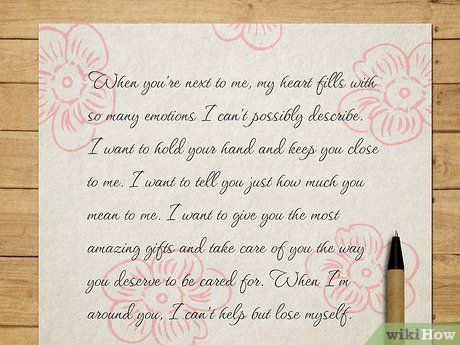 When you're next to me, my heart fills with
so many emotions I can't possibly describe.
I want to hold your hand and keep you close
to me. I want to tell you just how much you
mean to me. I want to give you the most
amazing gifts and take care of you the way
you deserve to be cared for. When I'm
around you, I can't help but lose myself.
wikiHow